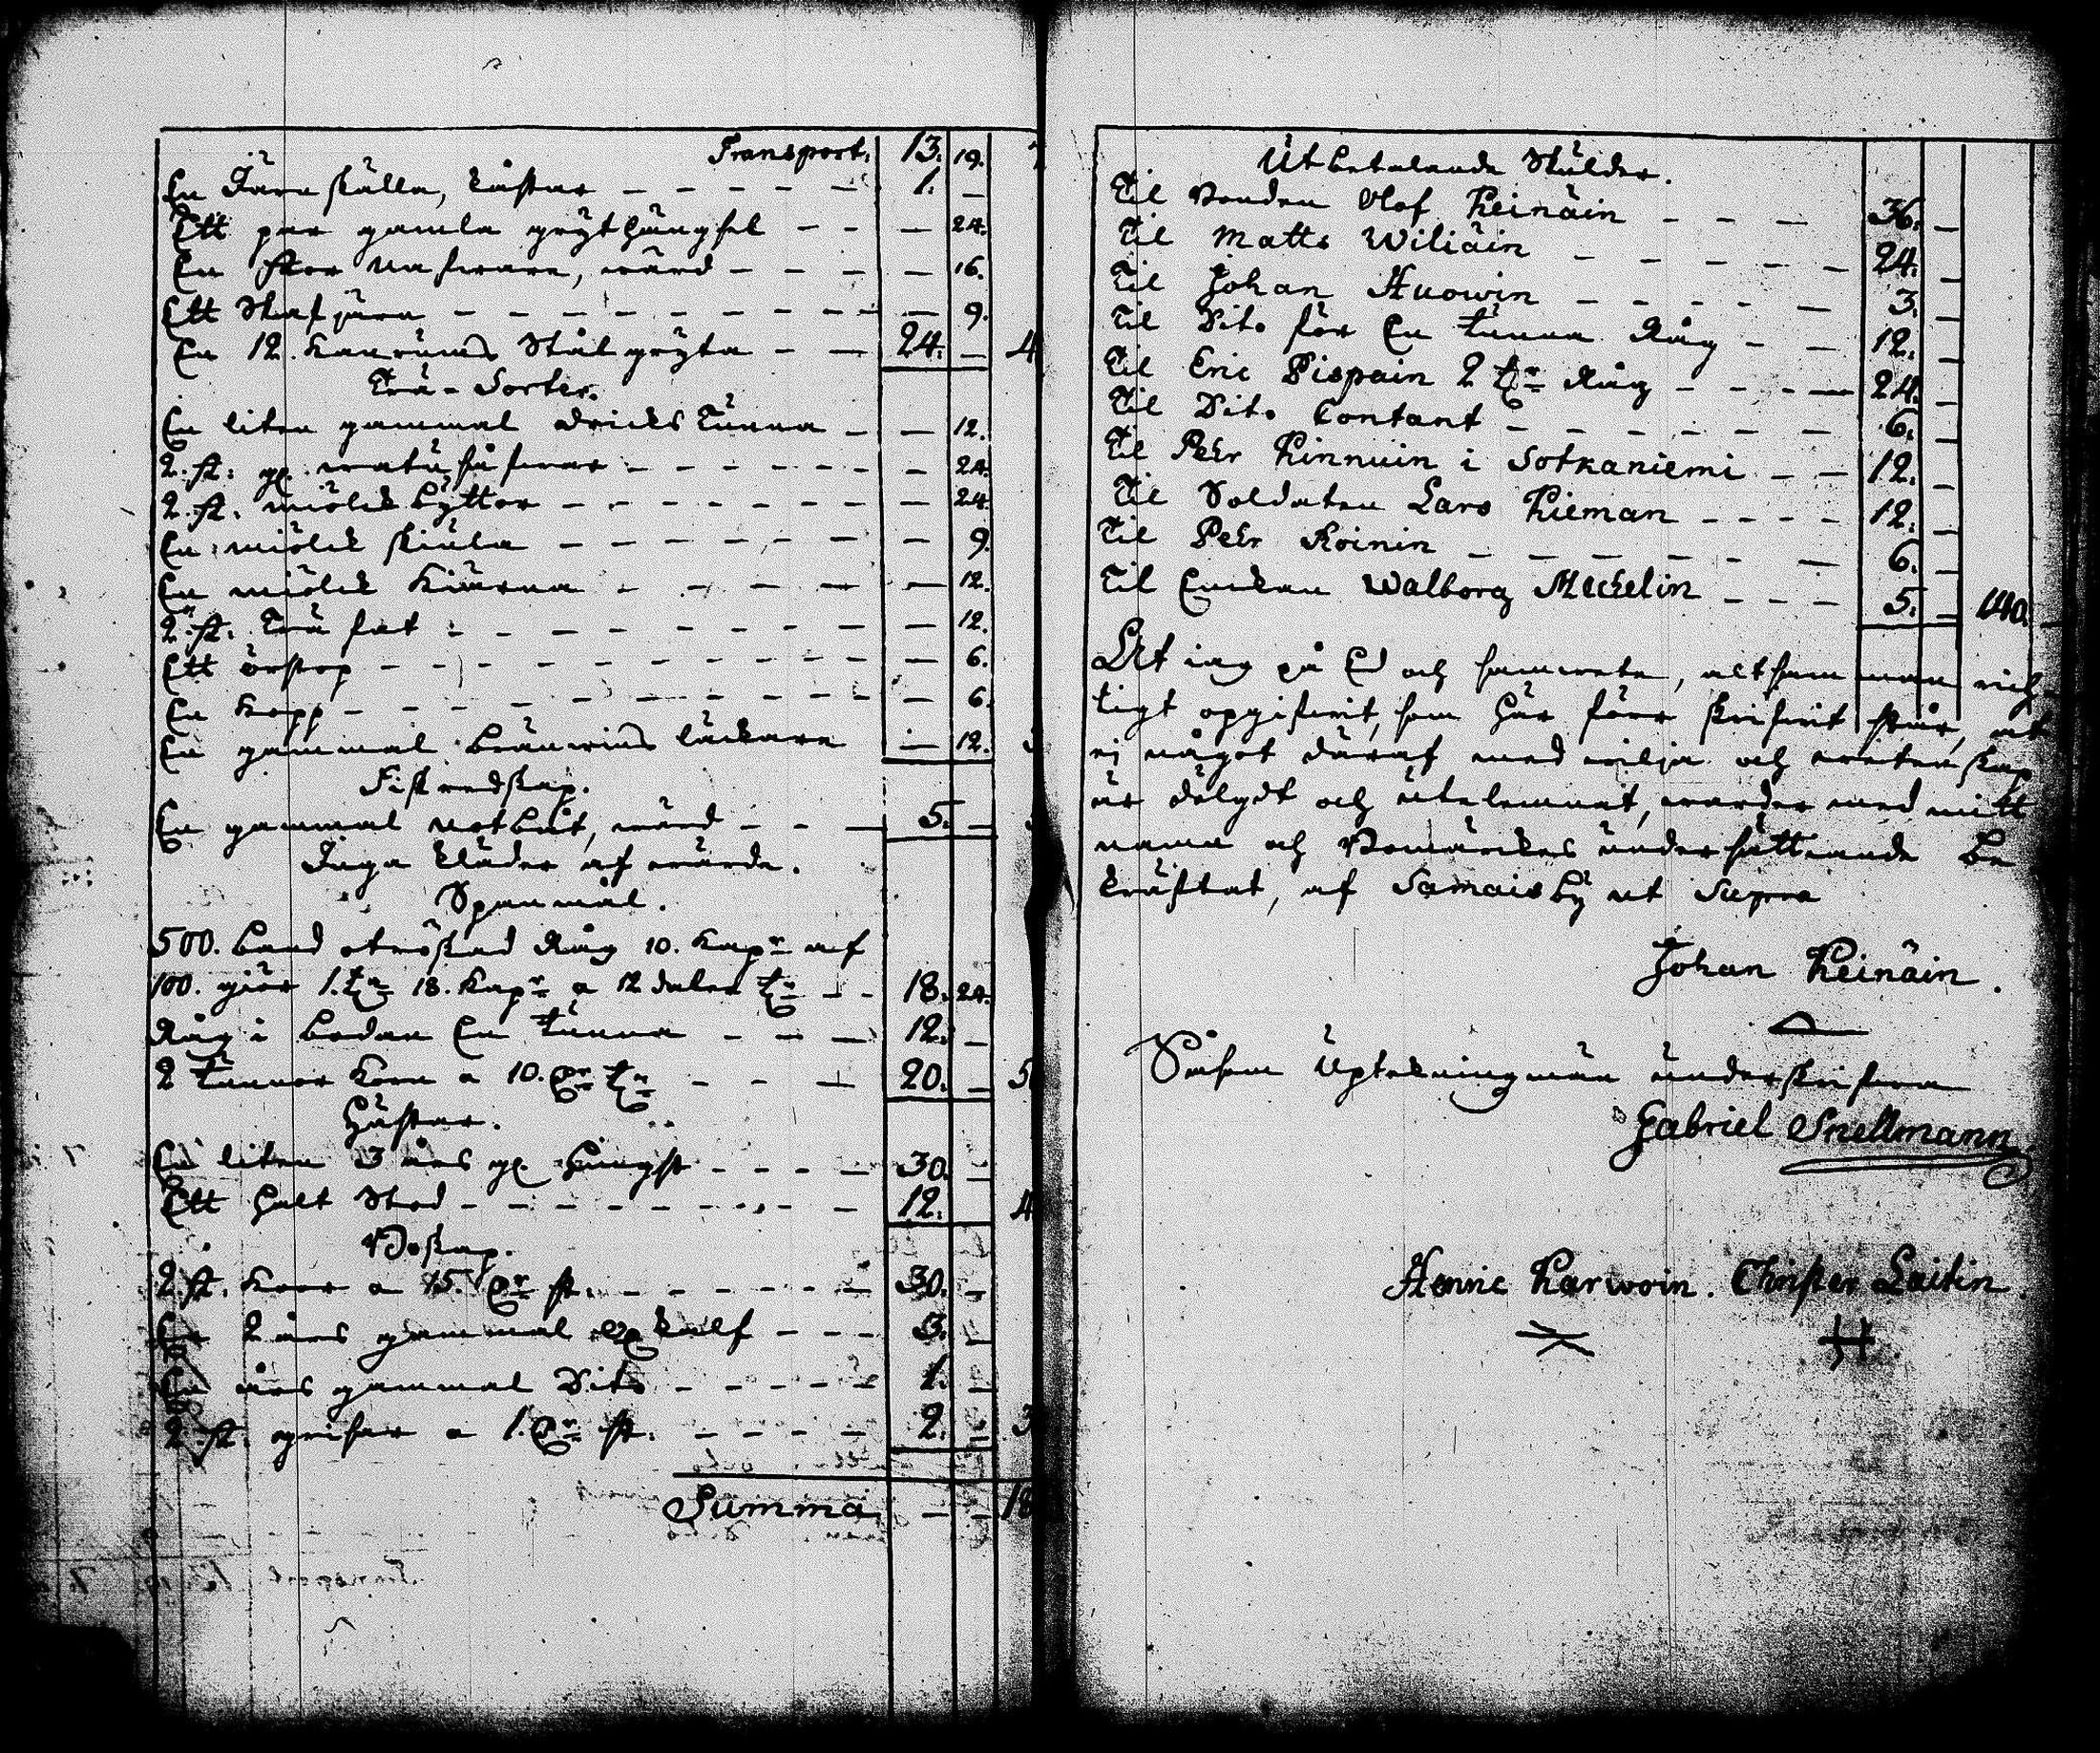 Transport. 13. 19. 7
En Järn skälla, kåstar – – – – – 1. –
Ett par gamla grÿthängsel – – – 24.
En stor Nafware, wärd – – – – 16.
Ett Stafjärn – – – – – – – – 9.
En 12. Kanrums Stålgrÿta – – 24. – 4
Trä-Sorter.
En liten gammal dricks Tunna – – 12.
2. st. gl. – – – – – – 24.
2. st. miölck bÿttor – – – – – – 24.
En miölck skiula – – – – – – – 9.
En miölck Kiärna – – – – – – 12.
2. st. Trä fat – – – – – – – – 12.
Ett örstop – – – – – – – – 6.
En Kopp – – – – – – – – 6.
En gammal bränwins läckare – 12. 3
Fiskredskap.
En gammal notbåt, wärd – – – 5. –
Inga kläder af wärde.
Spanmål.
500. band otröskad Råg 10. Kap:r af
100. giör 1. t:a 18. Kap:r a 12 daler t:n – – 18. 24.
Råg i bodan En Tunna – – – 12. –
2 Tunnor Korn a 10. D:r t:n – – – 20. – 5
Hästar.
En liten 3 års gl. Hingst – – – – 30. –
Ett halt Stod – – – – – – – – 12. 4
Boskap.
2. st. Koor a 15. D:r st. – – – – – – 30. –
En 2 års gammal qvigkalf – – – 3. –
En års gammal Dito – – – – – 1. –
2. st. grisar a 1. D:r st. – – – – 2. – 3
Summa – – 18
Utbetalande Skulder.
Til Bonden Olof Keinäin – – – 36. –
Til Matts Wiliäin – – – – – 24. –
Til Johan Huowin – – – – – 3. –
Til Dito för En tunna Råg – – 12. –
Til Eric Pispain 2 t:r Råg – – – – 24. –
Til Dito Contant – – – – – – 6. –
Til Pehr Kinnuin i Sotkaniemi – – 12. –
Til Soldaten Lars Kieman – – – – 12. –
Til Pehr Roinin – – – – – – 6. –
Til Enckan Walborg Mickelin – – – 5. – 140. –
At iag på Ed och samwete, altsamman rich-
tigt opgifwit, som här förr skrifwit står, at
ej något däraf med wilja och wetenskap
är dölgdt och utelemnat, warder med mitt
namn och Bomärckes undersättiande be
kräftat, af Samaisbÿ ut Supra
Johan Keinäin.
Såsom Uptekningmän underskrifwa
Gabriel Snellmann
Hennic Karwoin. Christer Laitin.